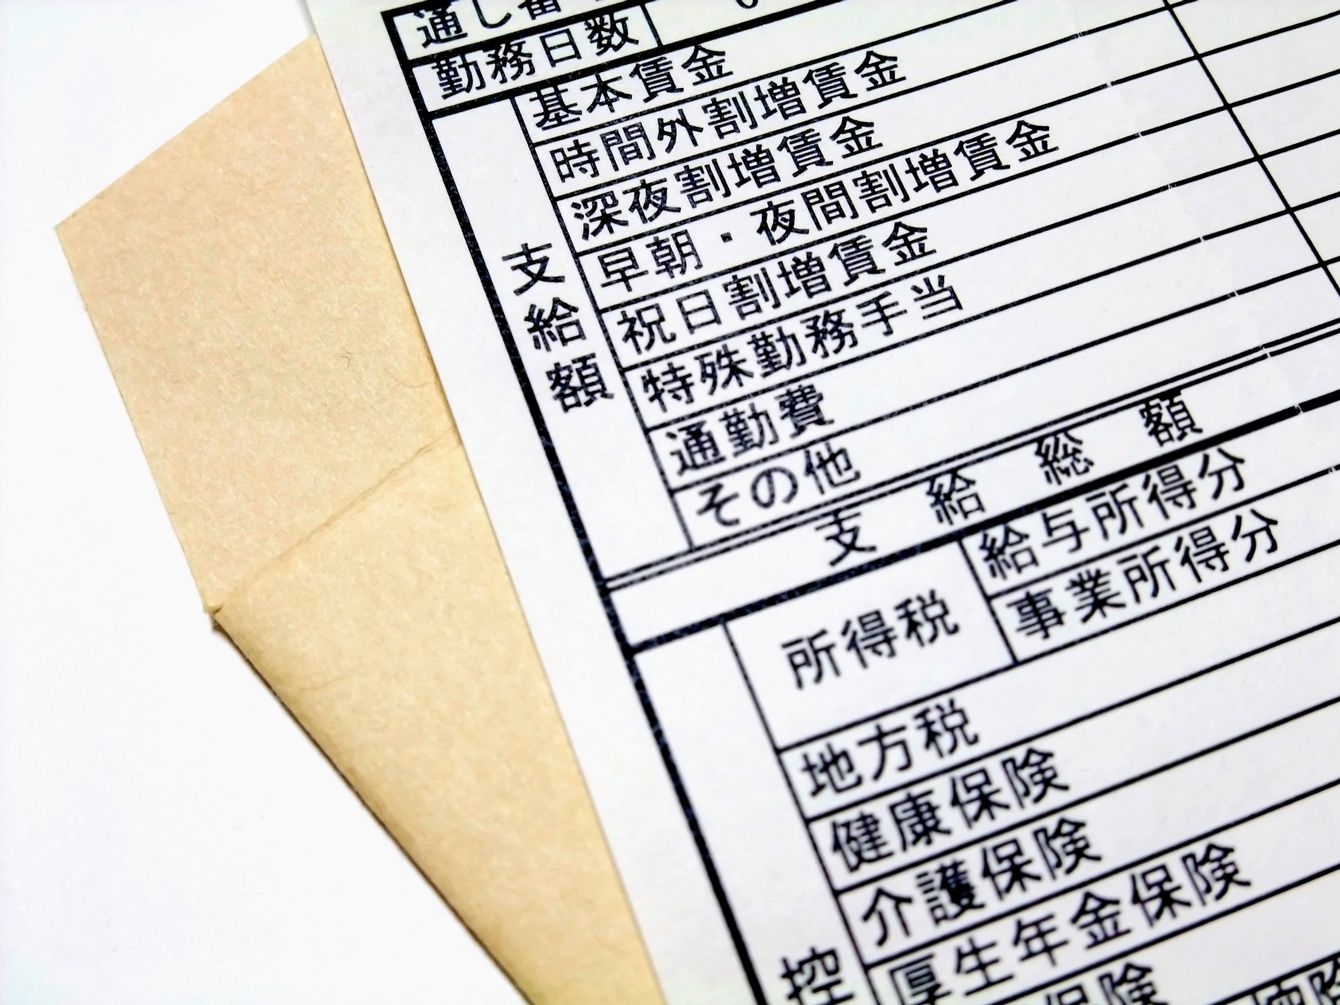 通し番
勤務日数
支給額
基本賃金
時間外割増賃金
深夜割増賃金
早朝・夜間割増賃金
祝日割増賃金
特殊勤務手当
通勤費
その他
支給総額
所得税
給与所得分
事業所得分
地方税
控
健康保険
介護保険
厚生年金保険
保険